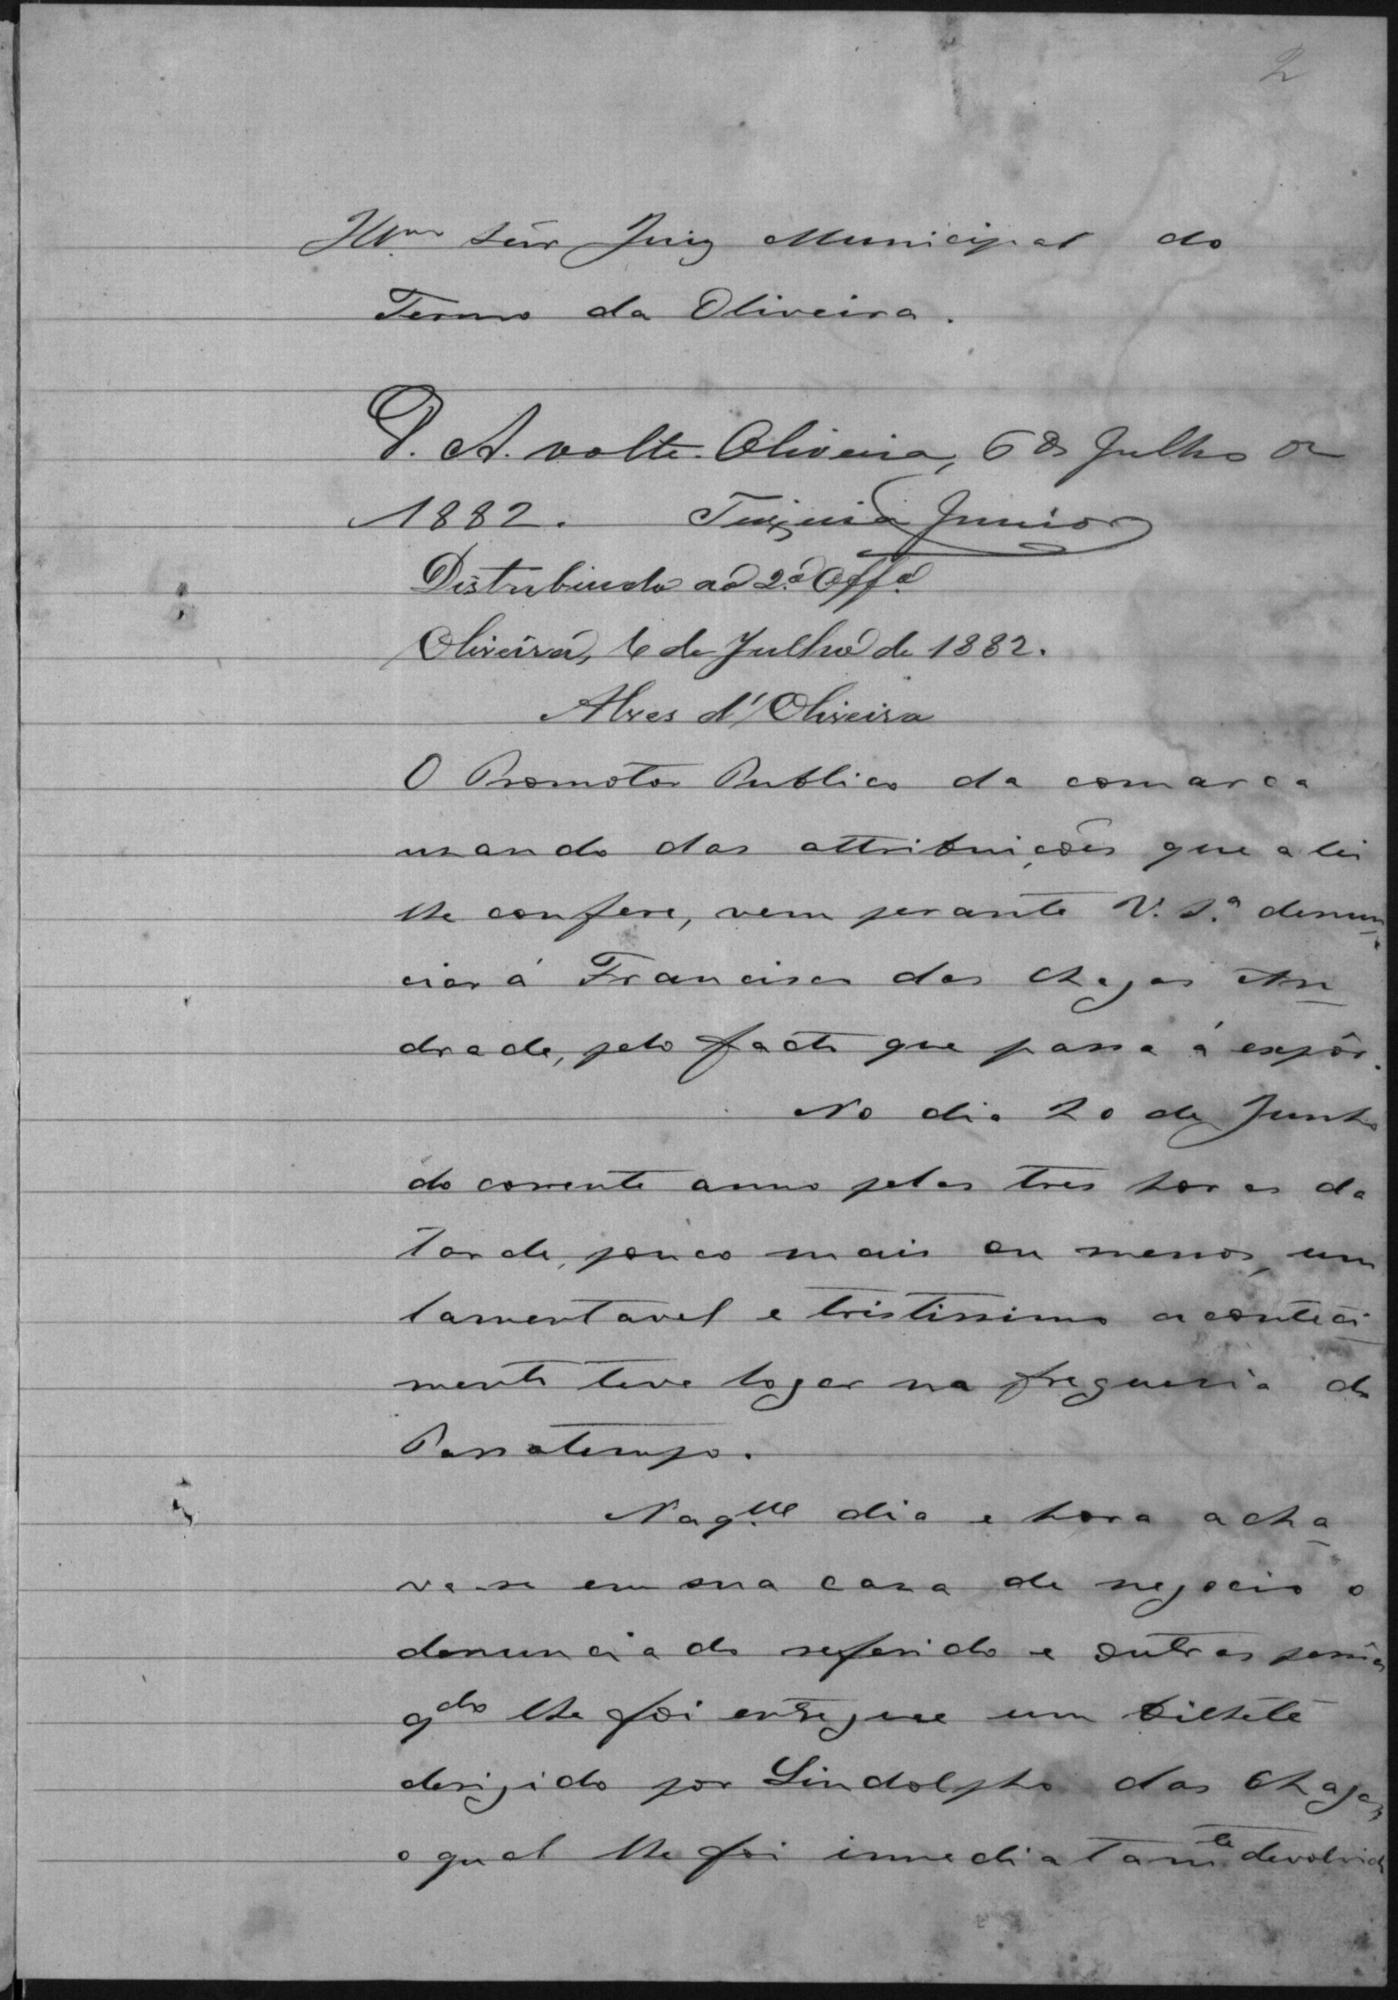 2
Illmo Snr Juiz Municipal do
Termo da Oliveira.
D. A. volte. Oliveira, 6 de Julho de
1882. Teixeira Junior
Distribuido ao 2.º Offº
Oliveira, 6 de Julho de 1882.
Alves d'Oliveira
O Promotor Publico da comarca
usando das attribuições que a lei
lhe confere, vem perante V. S.ª denun
ciar á Francisco das Chagas An
drade, pelo facto que passa á expôr.
No dia 20 de Junho
do corrente anno pelas tres horas da
tarde, pouco mais ou menos, um
lamentavel e tristissimo aconteci
mento teve logar na freguesia do
Passatempo.
Naq.lle dia e hora acha
va-se em sua casa de negocio o
denunciado referido e outras pessôas
qdo lhe foi entregue um bilhete
derigido por Lindolpho das Chagas,
o qual lhe foi immediatam.te devolvido